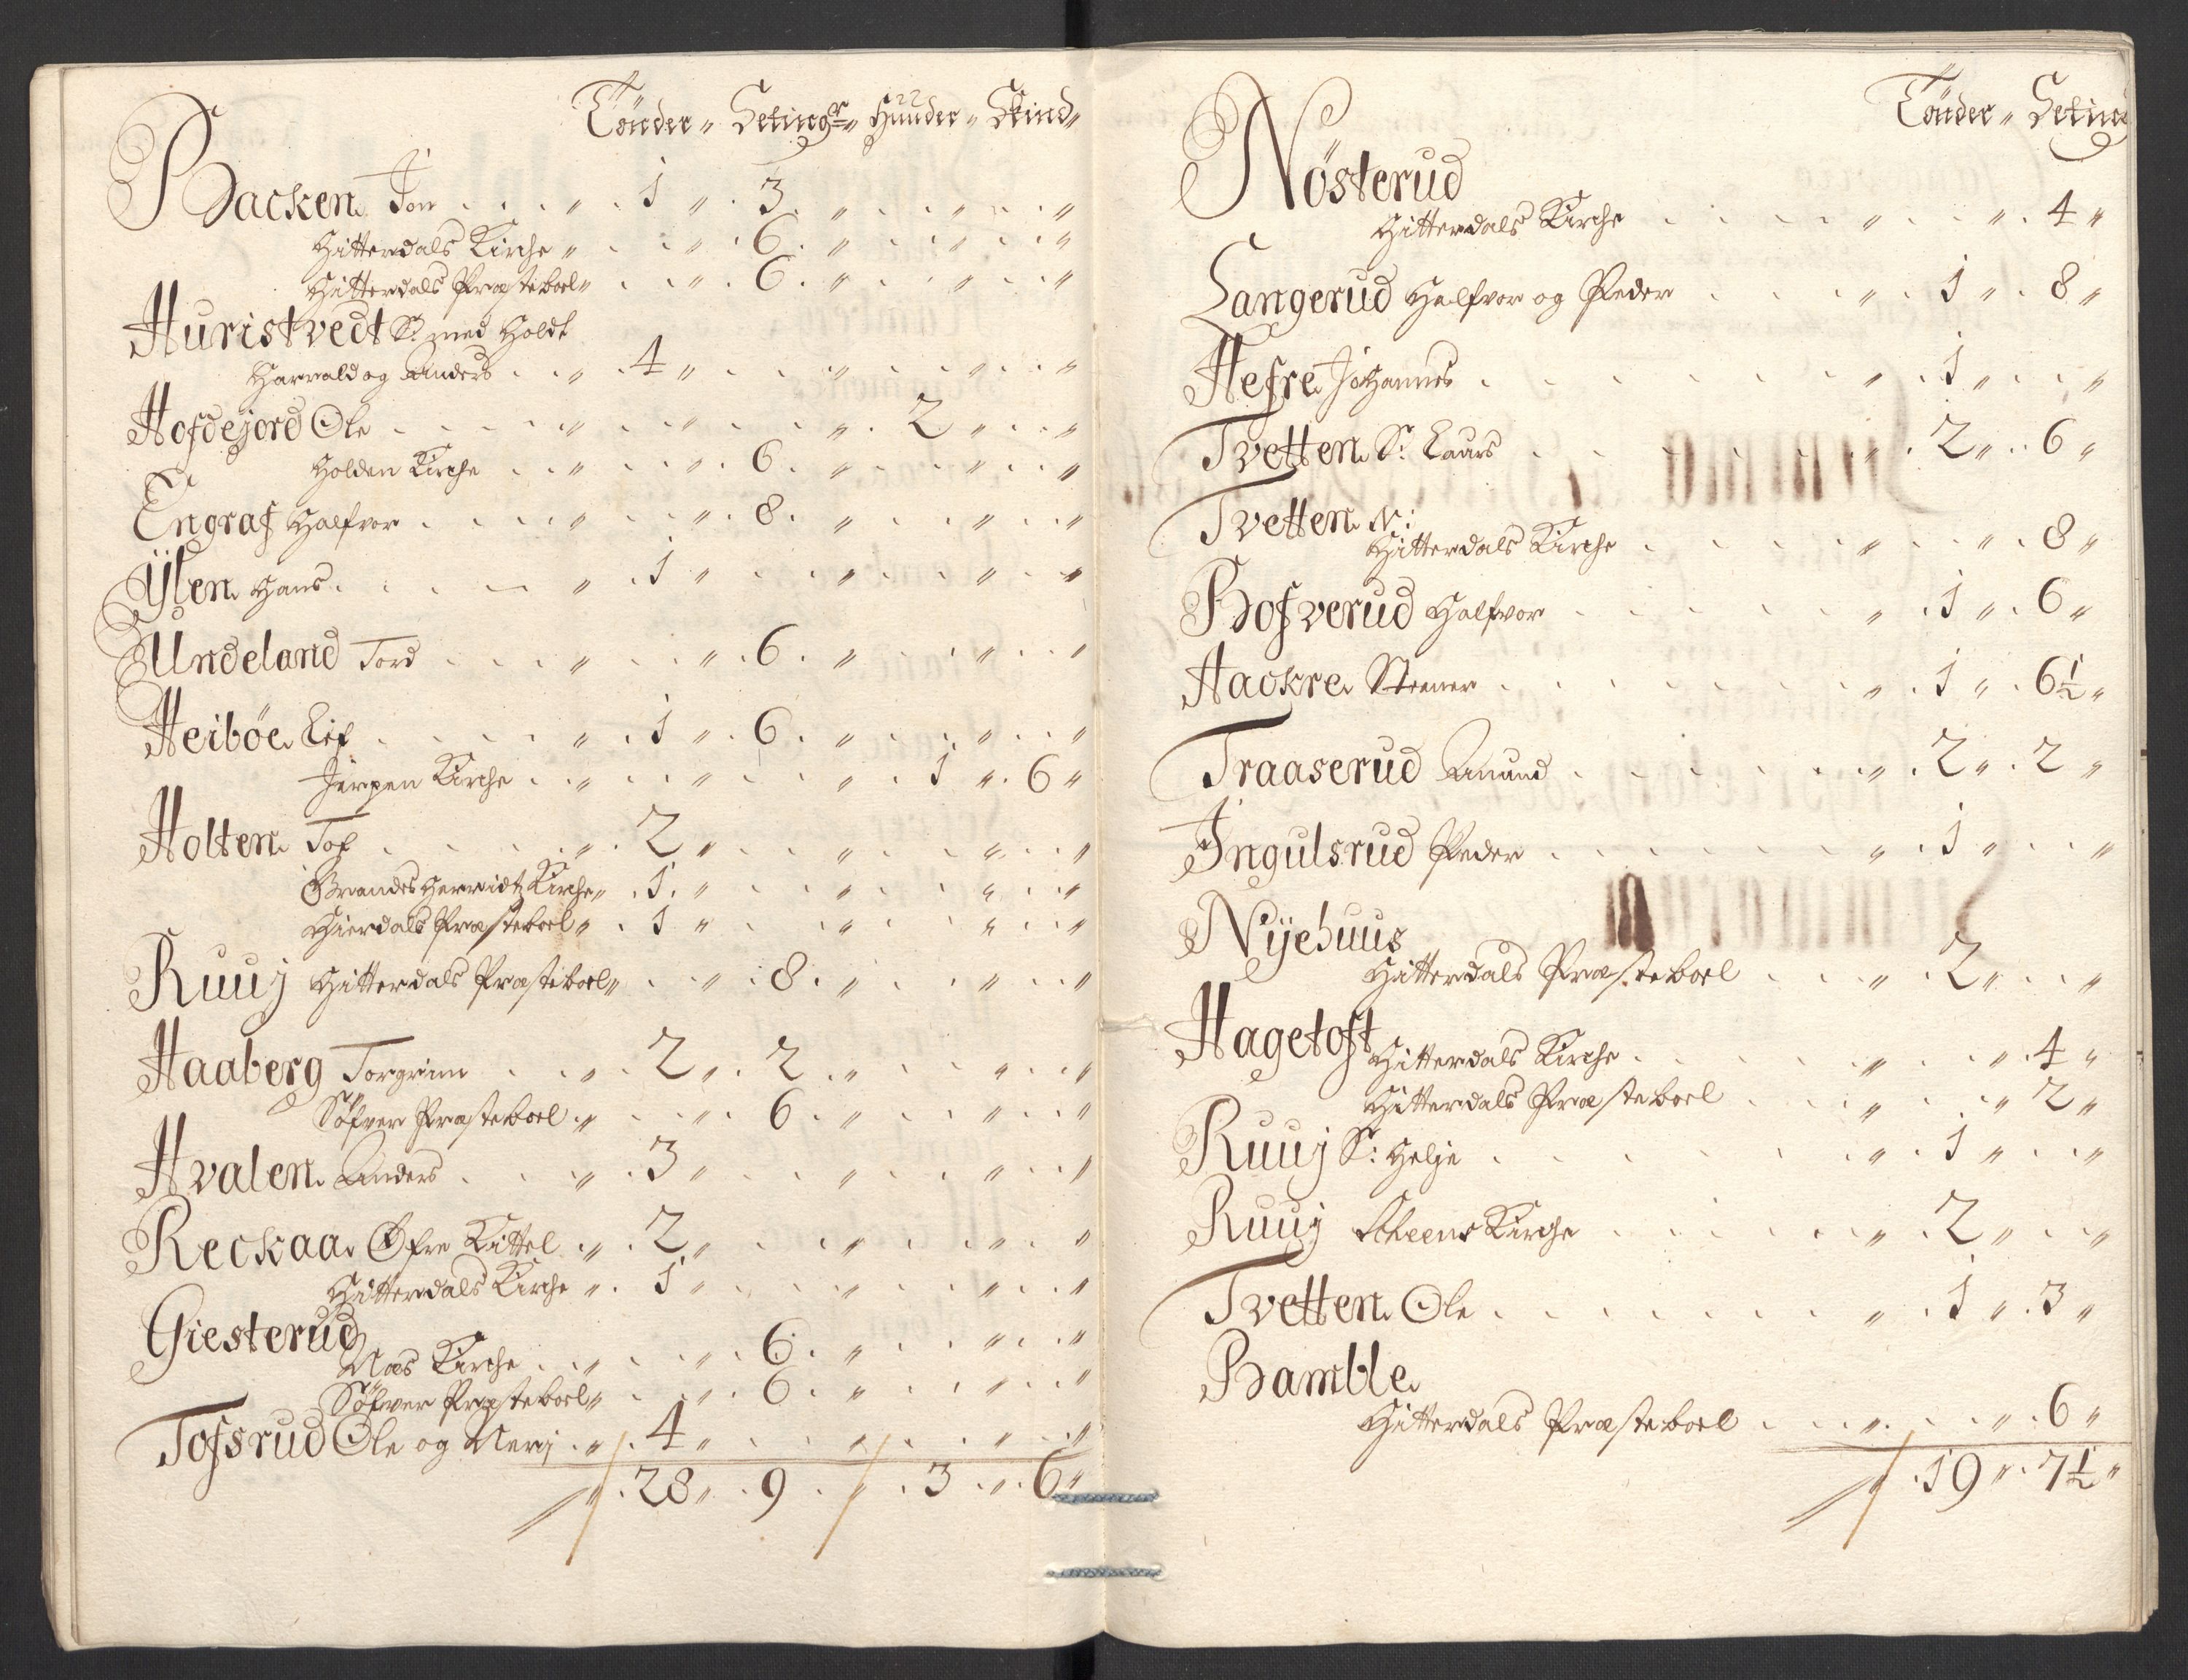 Tönder " Setingr " Huuder " Skind "
Backen Jon . . . " . 1 " . 3 . " . . " . . "
Hitterdals Kirche " . . " . 6 . " . . " . . "
Hitterdals Præsteboel " . . " . 6 . " . . " . . "
Huristvedt S: med Holdt
Harrald og Anders . . " . 4 " . . " . . " . . "
Hofdejord Ole . . . " . . " . . " . 2 " . . "
Holden Kirche . . " . . " . 6 . " . . " . . "
Engraf Halfvor . . . " . . " . 8 . " . . " . . "
Ÿlen Hans . . . " . 1 " . . " . . " . . "
Undeland Tord . . . " . . " . 6 . " . . " . . "
Heiböe Leif . . . " . 1 " . 6 . " . . " . . "
Jerpen Kirche . . " . . " . . " . 1 " . 6 "
Holten Tof . . . " . 2 " . . " . . " . . "
Brandes Herridtz Kirche " . 1 . " . . " . . " . . "
Hierdals Præsteboel " . 1 " . . " . . " . . "
Ruuj Hitterdals Præsteboel " . . " . 8 . " . . " . . "
Haaberg Torgrim . . " . 2 " . 2 . " . . " . . "
Söfver Præsteboel . " . . " . 6 . " . . " . . "
Hvalen Anders . . . " . 3 " . . " . . " . . "
Reckaa Öfre Kittel . " . 2 " . . " . . " . . "
Hitterdals Kirche " . 1 " . . " . . " . . "
Giesterud
Næs Kirche . . " . . " . 6 . " . . " . . "
Söfver Præsteboel " . . " . 6 . " . . " . . "
Tofsrud Ole og Nerj . " . 4 " . . " . . " . . "
" . 28 " . 9 . " . 3 " . 6 "
Tönder " Seting
Nösterud
Hitterdals Kirche . . . " . . " . 4 "
Langerud Halfvor og Peder . . . " . 1 " . 8 "
Hefre Johannes . . . " . 1 " . . "
Tvetten S: Laurs . . . " . 2 " . 6 "
Tvetten N:
Hitterdals Kirche . . . " . . " . 8 "
Bofverud Halfvor . . . " . 1 " . 6 "
Aackre Steener . . . " . 1 " . 6½ "
Traaserud Amund . . . " . 2 " . 2 "
Ingulsrud Peder . . . " . 1 " . . "
Nÿehuus
Hitterdals Præsteboel . . " . 2 " . . "
Hagetoft
Hitterdals Kirche . . . " . . " . 4 "
Hitterdals Præsteboel . . " . . " 2 "
Ruuj S: Helje . . . " . 1 " . . "
Ruuj Scheens Kirche . . . " . 2 " . . "
Tvetten Ole . . . " . 1 " . 3 "
Bamble
Hitterdals Præsteboel . . " . . " . 6 "
" . 19 " . 7½ "